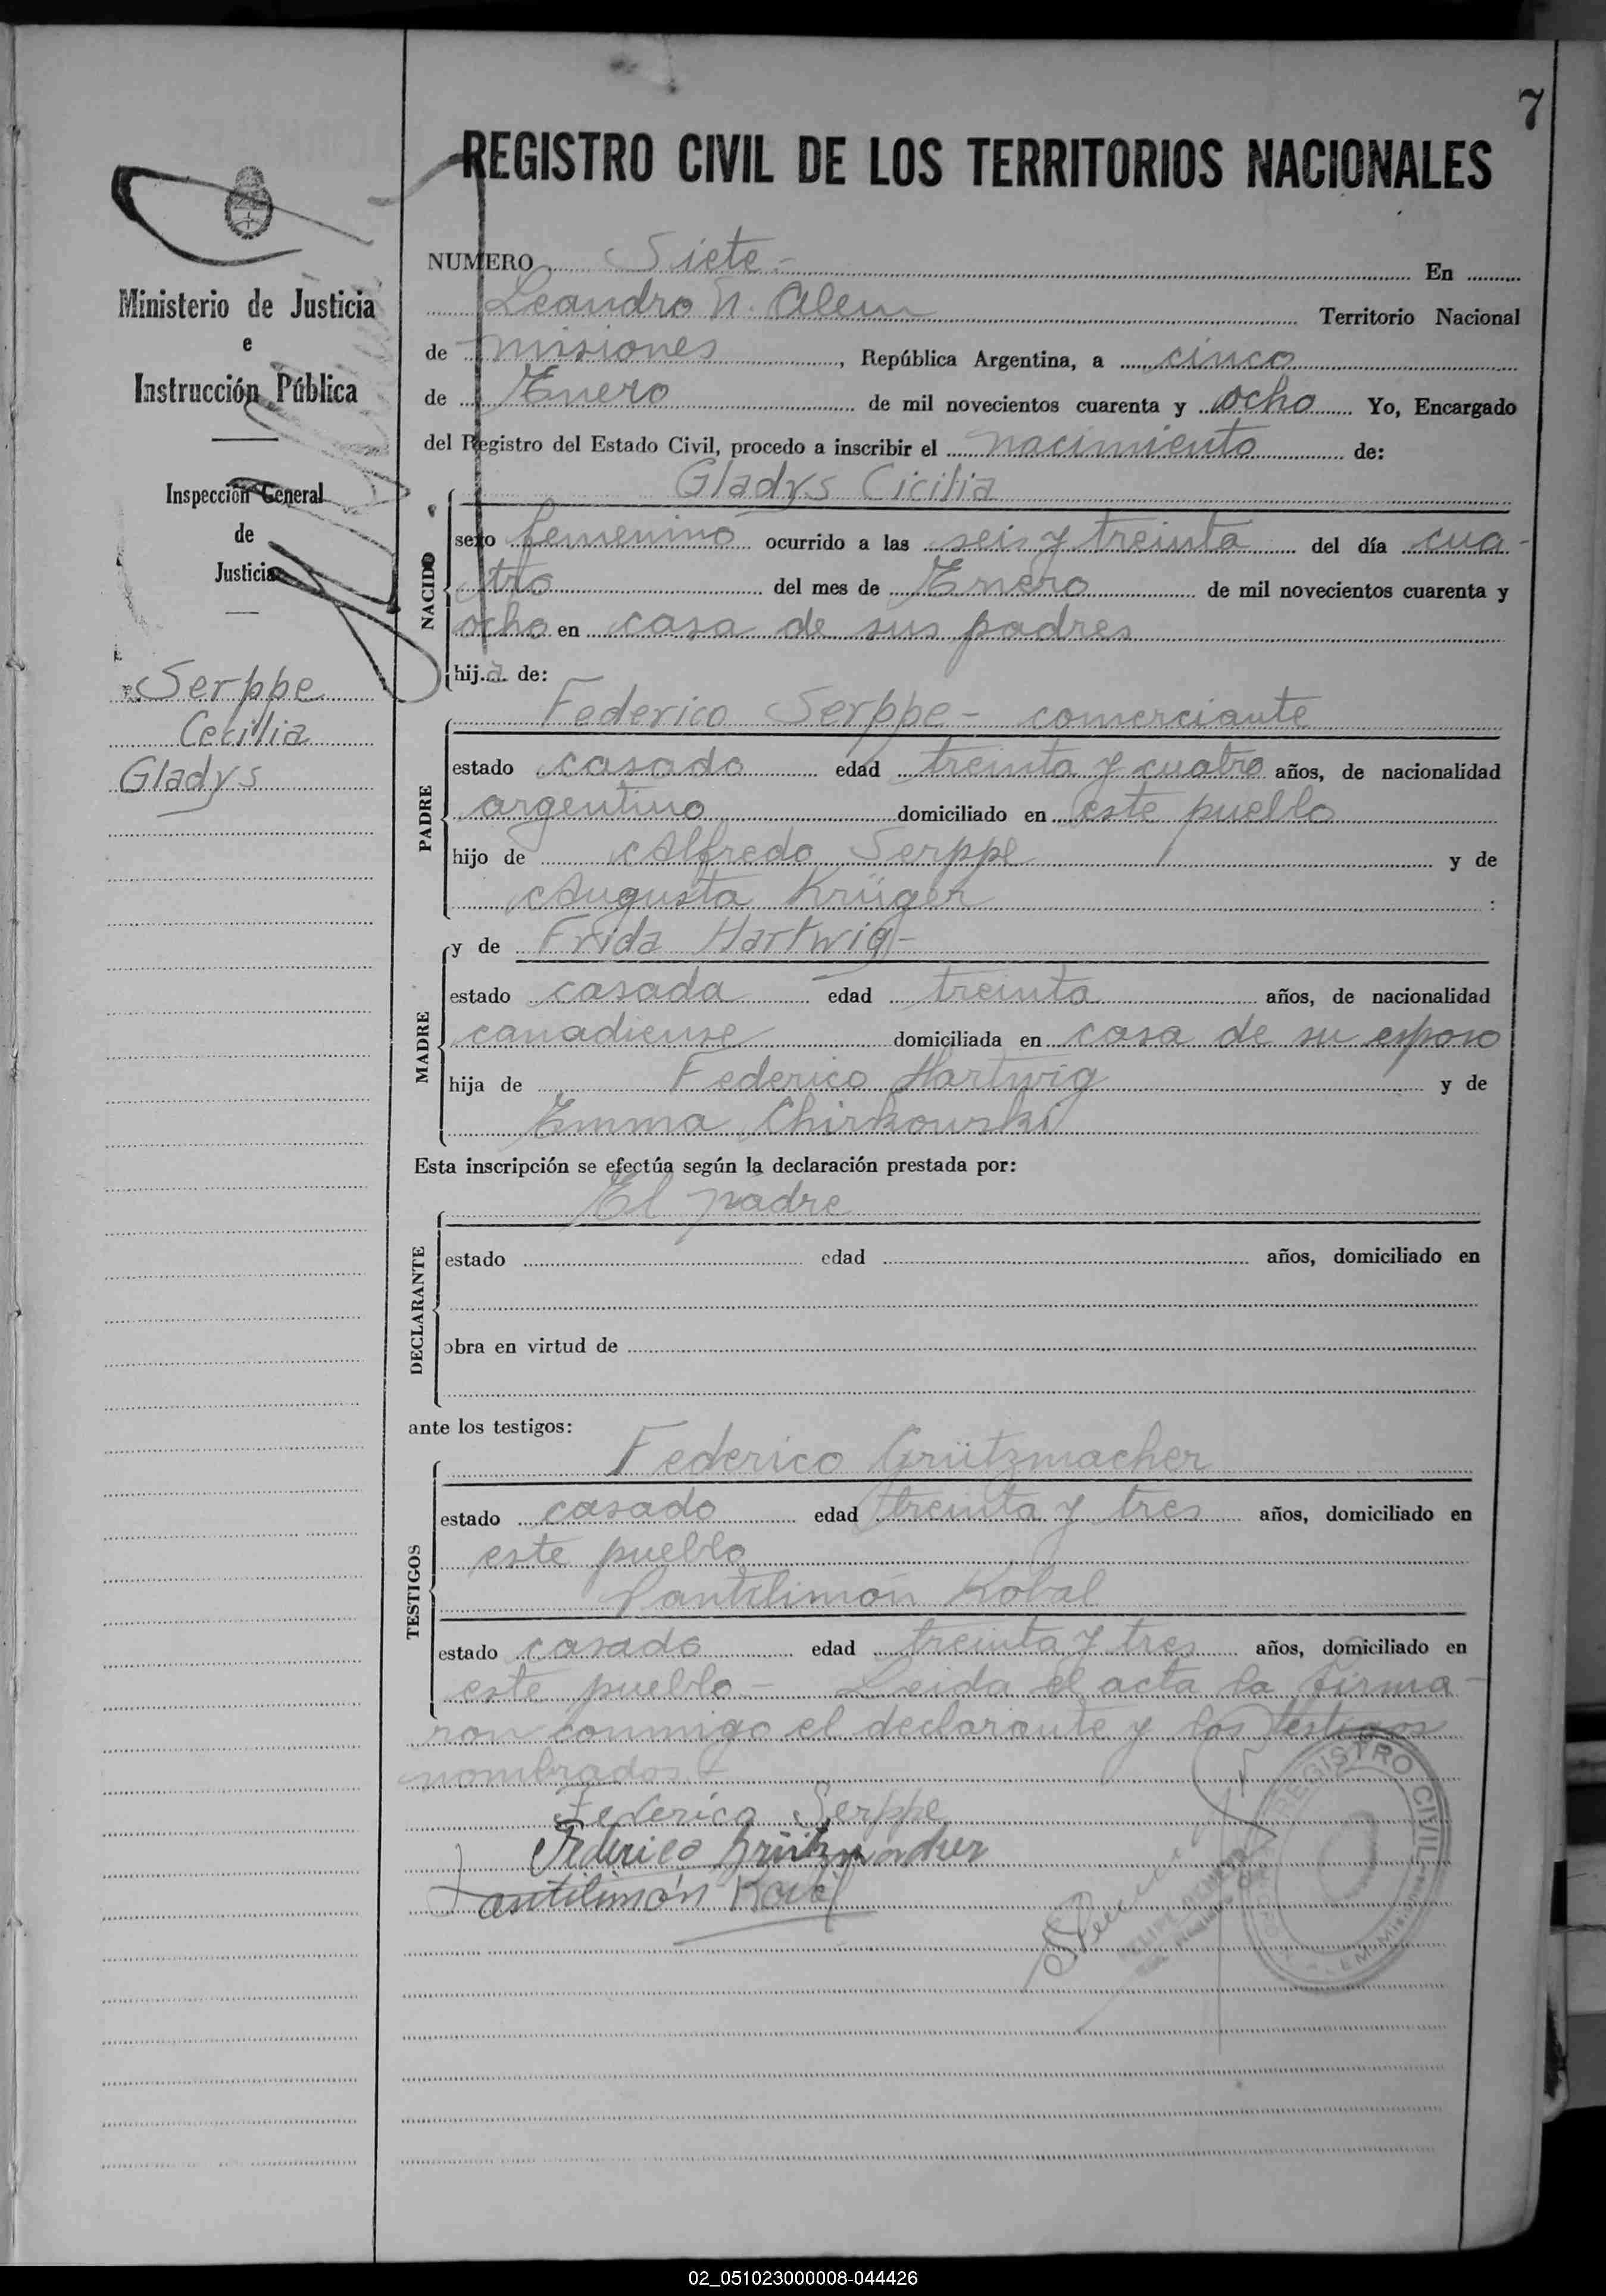 7
REGISTRO CIVIL DE LOS TERRITORIOS NACIONALES
Ministerio de Justicia
e
Instrucción Pública
Inspección General
de
Justicia
Serppe
Cecilia
Gladys
NUMERO Siete- En
Leandro N. Alem Territorio Nacional
de Misiones, República Argentina, a cinco
de Enero de mil novecientos cuarenta y ocho Yo, Encargado
del Registro del Estado Civil, procedo a inscribir el nacimiento de:
Gladys Cicilia
NACIDO
sexo femenino ocurrido a las seis y treinta del día cua-
tro del mes de Enero de mil novecientos cuarenta y
ocho en casa de sus padres
hija de:
Federico Serppe - comerciante
PADRE
estado casado edad treinta y cuatro años, de nacionalidad
argentino domiciliado en este pueblo
hijo de Alfredo Serppe y de
Augusta Krüger :
y de Frida Hartwig-
MADRE
estado casada edad treinta años, de nacionalidad
canadiense domiciliada en casa de su esposo
hija de Federico Hartwig y de
Emma Chirkowski
Esta inscripción se efectúa según la declaración prestada por:
El padre
DECLARANTE
estado edad años, domiciliado en
obra en virtud de
ante los testigos:
Federico Grützmacher
TESTIGOS
estado casado edad treinta y tres años, domiciliado en
este pueblo
Pantilimón Kobal
estado casado edad treinta y tres años, domiciliado en
este pueblo - Leida el acta la firma-
ron conmigo el declarante y los testigos
nombrados.-
Federico Serppe
Federico Grützmacher
Pantilimón Kobal
REGISTRO CIVIL
02_051023000008-044426